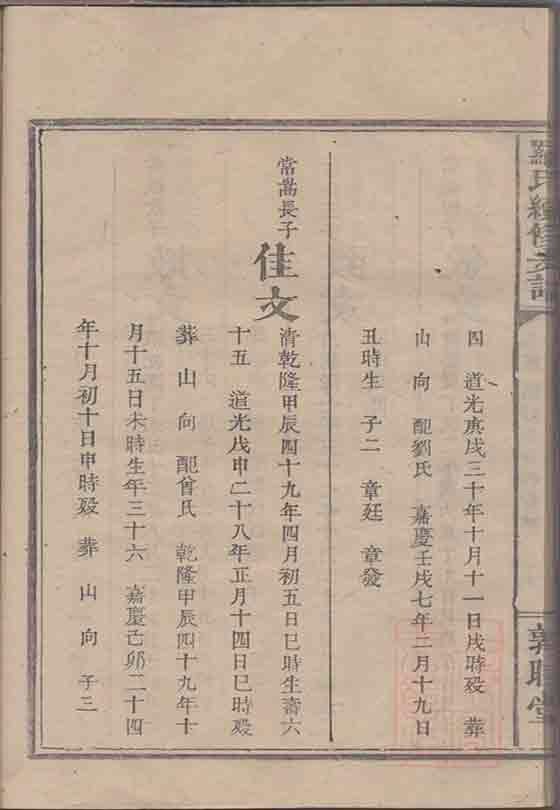 羅氏續修支譜
敦睦堂
四 道光庚戌三十年十月十一日戌時歿 葬
山 向 配劉氏 嘉慶壬戌七年二月十九日
丑時生 子二 章廷 章發
常嵩長子
佳文
清乾隆甲辰四十九年四月初五日巳時生壽六
十五 道光戊申二十八年正月十四日巳時歿
葬 山 向 配曾氏 乾隆甲辰四十九年十
月十五日未時生年三十六 嘉慶己卯二十四
年十月初十日申時歿 葬 山 向 子三